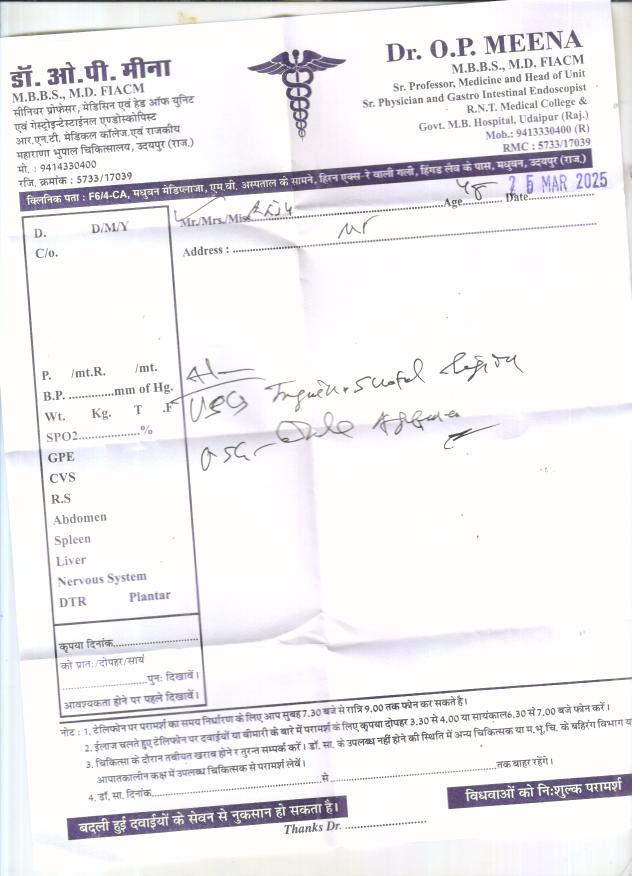 डॉ. ओ.पी. मीना
M.B.B.S., M.D. FIACM
सीनियर प्रोफेसर, मेडिसिन एवं हेड ऑफ यूनिट
एवं गेस्ट्रोइन्टेस्टाईनल एण्डोस्कोपिस्ट
आर.एन.टी. मेडिकल कॉलेज एवं राजकीय
महाराणा भुपाल चिकित्सालय, उदयपुर (राज.)
मो. : 9414330400
रजि. क्रमांक : 5733/17039
Dr. O.P. MEENA
M.B.B.S., M.D. FIACM
Sr. Professor, Medicine and Head of Unit
Sr. Physician and Gastro Intestinal Endoscopist
R.N.T. Medical College &
Govt. M.B. Hospital, Udaipur (Raj.)
Mob.: 9413330400 (R)
RMC : 5733/17039
क्लिनिक पता : F6/4-CA, मधुवन मेडिप्लाजा, एम.बी. अस्पताल के सामने, हिरन एक्स-रे वाली गली, हिंगड लेब के पास, मधुवन, उदयपुर (राज.)
Mr./Mrs./Miss Age 48 Date 25 MAR 2025
Address :
D. D/M/Y
C/o.
P. /mt.R. /mt.
B.P. ..............mm of Hg.
Wt. Kg. T .F
SPO2....................%
GPE
CVS
R.S
Abdomen
Spleen
Liver
Nervous System
DTR Plantar
USG
कृपया दिनांक
को प्रातः/दोपहर/सायं
पुनः दिखावें।
आवश्यकता होने पर पहले दिखावें।
नोट : 1. टेलिफोन पर परामर्श का समय निर्धारण के लिए आप सुबह 7.30 बजे से रात्रि 9.00 तक फोन कर सकते है।
2. ईलाज चलते हुए टेलिफोन पर दवाईयों या बीमारी के बारे में परामर्श के लिए कृपया दोपहर 3.30 से 4.00 या सायंकाल 6.30 से 7.00 बजे फोन करें।
3. चिकित्सा के दौरान तबीयत खराब होने र तुरन्त सम्पर्क करें। डॉ. सा. के उपलब्ध नहीं होने की स्थिति में अन्य चिकित्सक या म.भू.चि. के बहिरंग विभाग या
आपातकालीन कक्ष में उपलब्ध चिकित्सक से परामर्श लेवें।
4. डॉ. सा. दिनांक से तक बाहर रहेंगे।
बदली हुई दवाईयों के सेवन से नुकसान हो सकता है।
विधवाओं को निःशुल्क परामर्श
Thanks Dr.